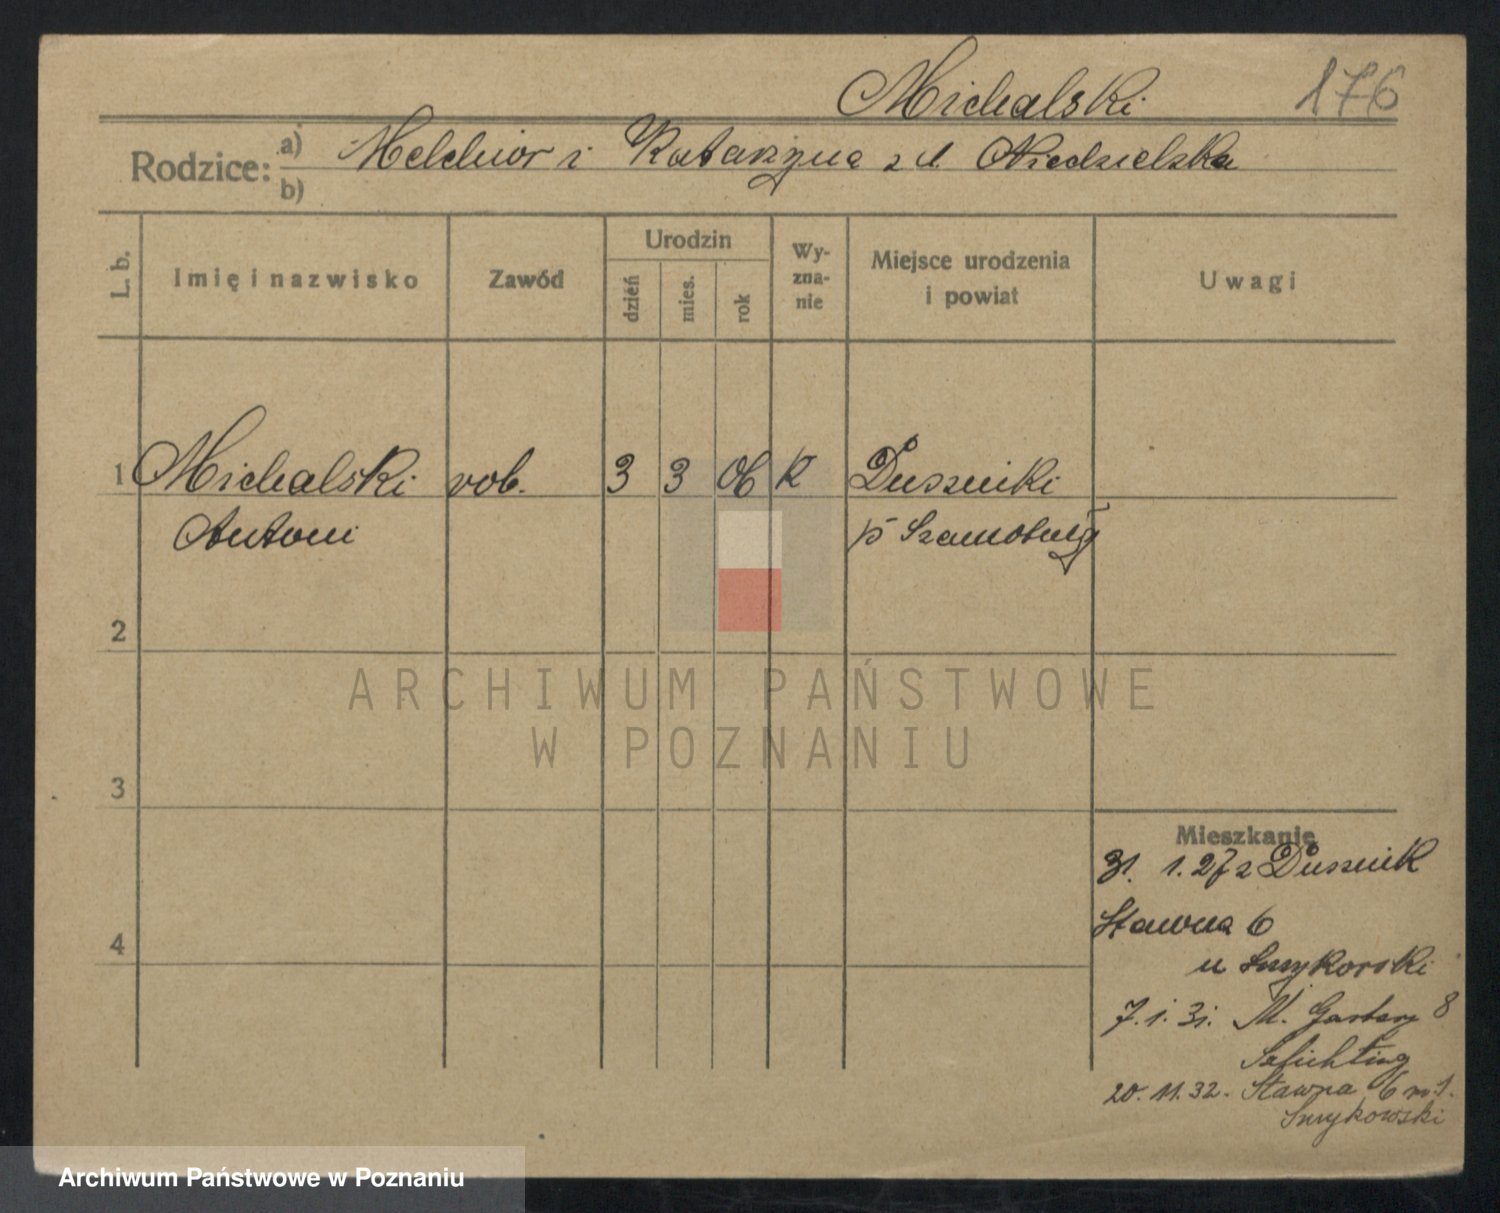 Michalski 176
Rodzice: a) Melchior i Katarzyna z d. Niedzielska
b)
L. b.
Imię i nazwisko
Zawód
Urodzin
dzień
mies.
rok
Wy-
zna-
nie
Miejsce urodzenia
i powiat
Uwagi
1 Michalski rob. 3 3 06 k Duszniki
Antoni p Szamotuły
2
ARCHIWUM PAŃSTWOWE
W POZNANIU
3
Mieszkanie
31. 1. 27 z Dusznik
4
Stawna 6
u Smykorski
7. 1. 31. M. Garbary 8
Szlichting
20. 11. 32. Stawna 6 m. 1.
Smykowski
Archiwum Państwowe w Poznaniu